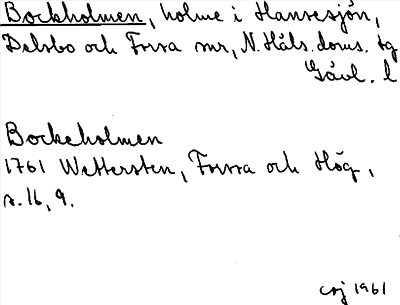 Bockholmen, holme i Hansesjön,
Delsbo och Forsa snr, N. Häls. doms. tg
Gävl. l
Bockeholmen
1761 Wettersten, Forssa och Hög,
s. 16, 9.
csj 1961